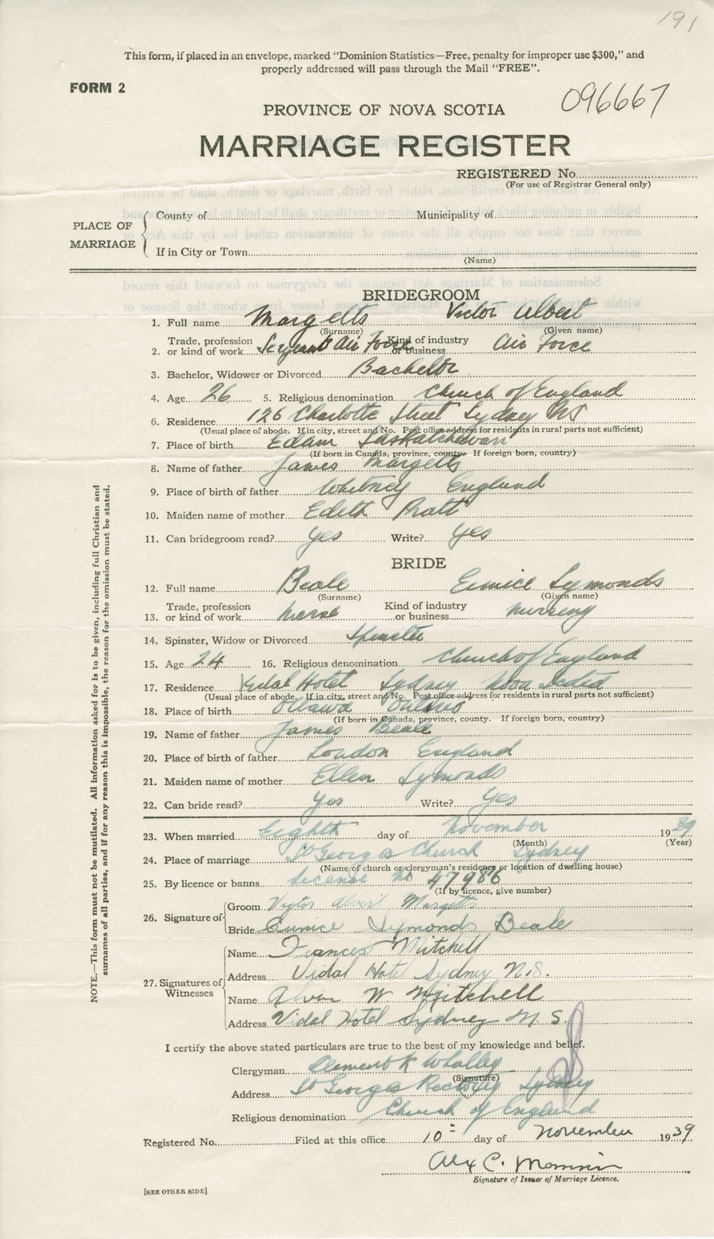 191
This form, if placed in an envelope, marked "Dominion Statistics—Free, penalty for improper use $300," and
properly addressed will pass through the Mail "FREE".
FORM 2
096667
PROVINCE OF NOVA SCOTIA
MARRIAGE REGISTER
REGISTERED No.
(For use of Registrar General only)
PLACE OF MARRIAGE
County of Municipality of
If in City or Town
(Name)
BRIDEGROOM
1. Full name Margetts Victor Albert
(Surname) (Given name)
2. Trade, profession or kind of work Sergeant Air Force Kind of industry or business Air Force
3. Bachelor, Widower or Divorced Bachelor
4. Age 26 5. Religious denomination Church of England
6. Residence 126 Charlotte Street Sydney NS
(Usual place of abode. If in city, street and No. Post office address for residents in rural parts not sufficient)
7. Place of birth Edam Saskatchewan
(If born in Canada, province, county. If foreign born, country)
8. Name of father James Margetts
9. Place of birth of father Whitney England
10. Maiden name of mother Edith Pratt
11. Can bridegroom read? yes Write? yes
BRIDE
12. Full name Beale Eunice Symonds
(Surname) (Given name)
13. Trade, profession or kind of work nurse Kind of industry or business nursing
14. Spinster, Widow or Divorced Spinster
15. Age 24 16. Religious denomination Church of England
17. Residence Vidal Hotel Sydney Nova Scotia
(Usual place of abode. If in city, street and No. Post office address for residents in rural parts not sufficient)
18. Place of birth Ottawa Ontario
(If born in Canada, province, county. If foreign born, country)
19. Name of father James Beale
20. Place of birth of father London England
21. Maiden name of mother Ellen Symonds
22. Can bride read? Yes Write? Yes
23. When married Eighth day of November 1939
(Month) (Year)
24. Place of marriage St Georges Church Sydney
(Name of church or clergyman's residence or location of dwelling house)
25. By licence or banns license no 47986
(If by licence, give number)
26. Signature of
Groom Victor Albert Margetts
Bride Eunice Symonds Beale
27. Signatures of Witnesses
Name Frances Mitchell
Address Vidal Hotel Sydney N.S.
Name Alvin W Mitchell
Address Vidal Hotel Sydney N.S.
I certify the above stated particulars are true to the best of my knowledge and belief.
Clergyman Whalley
(Signature)
Address St Georges Rectory Sydney
Religious denomination Church of England
Registered No. Filed at this office 10 day of November 1939
Alex C.
Signature of Issuer of Marriage Licence.
[SEE OTHER SIDE]
NOTE.—This form must not be mutilated. All information asked for is to be given, including full Christian and
surnames of all parties, and if for any reason this is impossible, the reason for the omission must be stated.